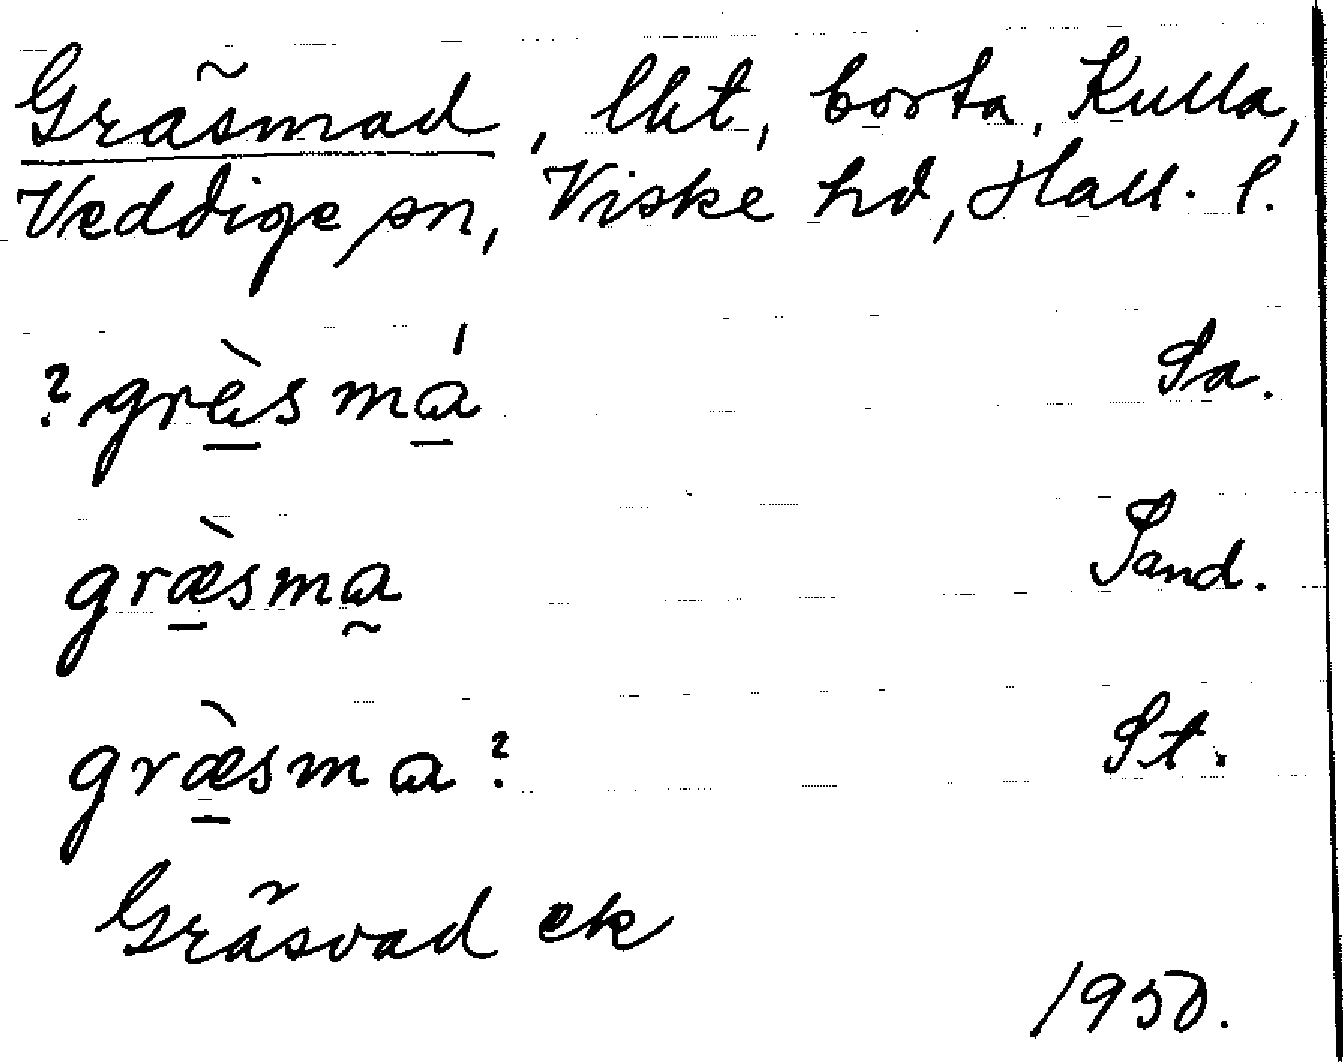 Gräsmad, lht, borta, Kulla,
Veddige sn, Viske hd, Hall. l.
? græ̀smá Sa.
græ̀sma Sand.
græ̀sma ? St.
Gräsvad ek
1950.